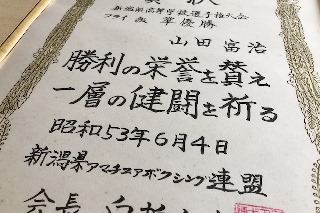 賞状
新潟県高等学校選手権大会
フライ級 準優勝
山田富治
勝利の栄誉を賛え
一層の健闘を祈る
昭和53年6月4日
新潟県アマチュアボクシング連盟
会長